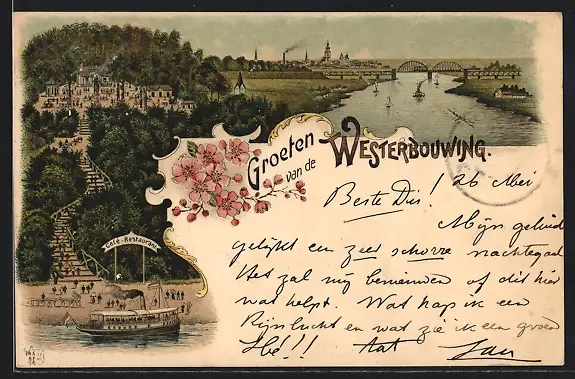 Groeten
van de
WESTERBOUWING.
Café-Restaurant
Beste Dis! 26 Mei
Mijn geluid
gelijkt een zeer schorre nachtegaal
Het zal mij benieuwen of dit hier
wat helpt. Wat hap ik een
Rijnlucht en wat zie ik een groen
Hé!!! tat Jan